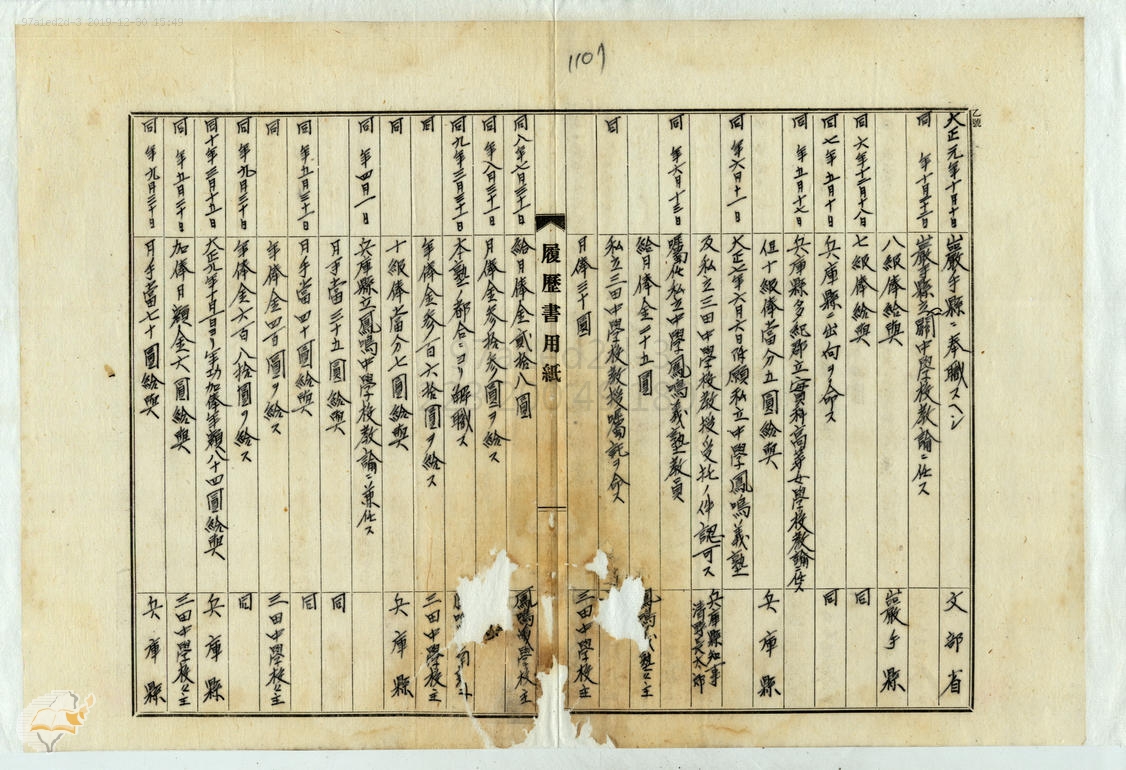 1107
乙號
大正元年十月十日 巖手縣ニ奉職スヘシ 文部省
同 年十月 巖手縣立一關中學校教諭ニ任ス
八級俸給與 巖手縣
同六年十二月十八日 七級俸給與 同
同七年五月十日 兵庫縣ニ出向ヲ命ス 同
同 年五月十七日 兵庫縣多紀郡立實科高等女學校教諭ニ任ス
但十級俸當分五圓給與 兵庫縣
同 年六月十一日 大正七年六月六日付願私立中學鳳鳴義塾
及私立三田中學校教授受託ノ件認可ス 兵庫縣知事 清野長太郎
同 年六月十三日 囑任私立中學鳳鳴義塾教員
給月俸金二十五圓 鳳鳴義塾々主
同 私立三田中學校教授囑託ヲ命ス
月俸三十圓 三田中學校主
履歷書用紙
同八年七月三十一日 給月俸金貳拾八圓 鳳鳴
同 年八月三十一日 月俸金參拾參圓ヲ給ス
同九年三月三十一日 本塾ノ都合ニヨリ解職ス
同 年俸金參百六拾圓ヲ給ス 三田中學校主
同 十級俸當分七圓給與 兵庫縣
同 年四月一日 兵庫縣立鳳鳴中學校教諭ニ兼任ス
月手當三十五圓給與 同
同 年五月三十一日 月手當四十圓給與 同
同 年俸金四百圓ヲ給ス 三田中學校々主
同 年九月三十日 年俸金六百八拾圓ヲ給ス 同
同十年三月十五日 大正九年十月一日ヨリ年功加俸年額八十四圓給與 兵庫縣
同 年五月三十日 加俸月額金六圓給與 三田中學校々主
同 年九月三十日 月手當七十圓給與 兵庫縣